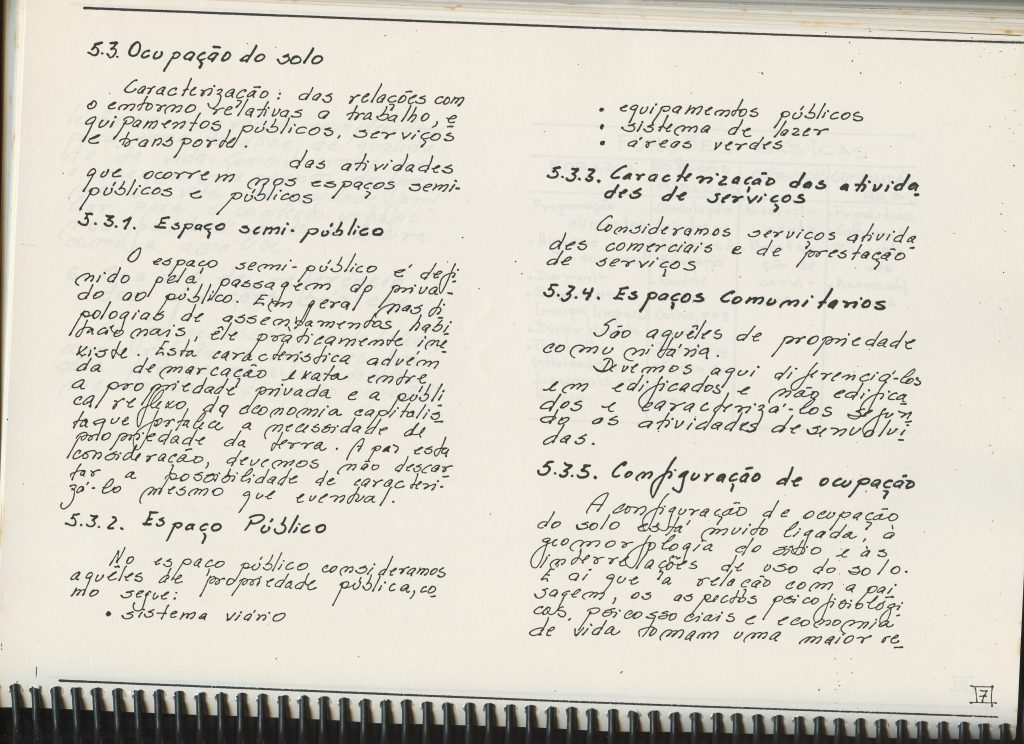 5.3. Ocupação do solo
Caracterização: das relações com
o entorno relativas a trabalho, e
quipamentos, públicos, serviços
le transporte.
das atividades
que ocorrem nos espaços semi-
públicos e públicos
5.3.1. Espaço semi-público
O espaço semi-público é defi
nido pela passagem do priva-
do ao público. Em geral, nas ti
pologias de assentamentos habi
tacionais, ele praticamente ine
xiste. Esta característica advém
da demarcação exata entre
a propriedade privada e a públi
ca, reflexo da economia capitalis_
ta que fortalece a necessidade de
propriedade da terra. A par esta
consideração, devemos não descar
tar a possibilidade de caracteri-
zá-lo mesmo que eventual.
5.3.2. Espaço Público
No espaço público consideramos
aquêles de propriedade pública, co_
mo segue:
• sistema viário
• equipamentos públicos
• sistema de lazer
• áreas verdes
5.3.3. Caracterização das ativida_
des de serviços
Consideramos serviços ativida
des comerciais e de prestação
de serviços
5.3.4. Espaços Comunitarios
São aquêles de propriedade
comunitária.
Devemos aqui diferenciá-los
em edificados e não edifica_
dos e caracterizá-los segun_
do as atividades desenvolvi_
das.
5.3.5. Configuração de ocupação
A configuração de ocupação
do solo está muito ligada, à
geomorfologia do sitio e às
interrelações de uso do solo.
E aí que a relação com a pai
sagem, os aspectos psicofisiológi_
cos, psicossociais e economia
de vida tomam uma maior re_
7